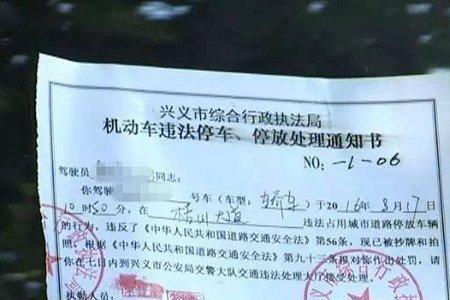 兴义市综合行政执法局
机动车违法停车、停放处理通知书
NO:-1-06
驾驶员 同志:
你驾驶 号车(车型:轿车)于2016年8月17日
10时50分,在 桔山大道 违法占用城市道路停放车辆
的行为,违反了《中华人民共和国道路交通安全法》第56条,现已被抄牌和拍
照;根据《中华人民共和国道路交通安全法》第九十三条拟对你作出处罚,请
你在七日内到兴义市公安局交警大队交通违法处理大厅接受处理。
执勤人员: